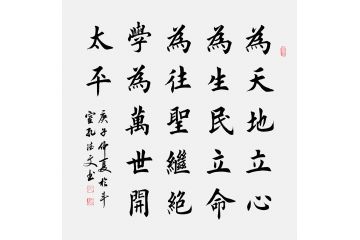 為天地立心
為生民立命
為往聖繼絕
學為萬世開
太平
庚子仲夏於斗
室孔法文書